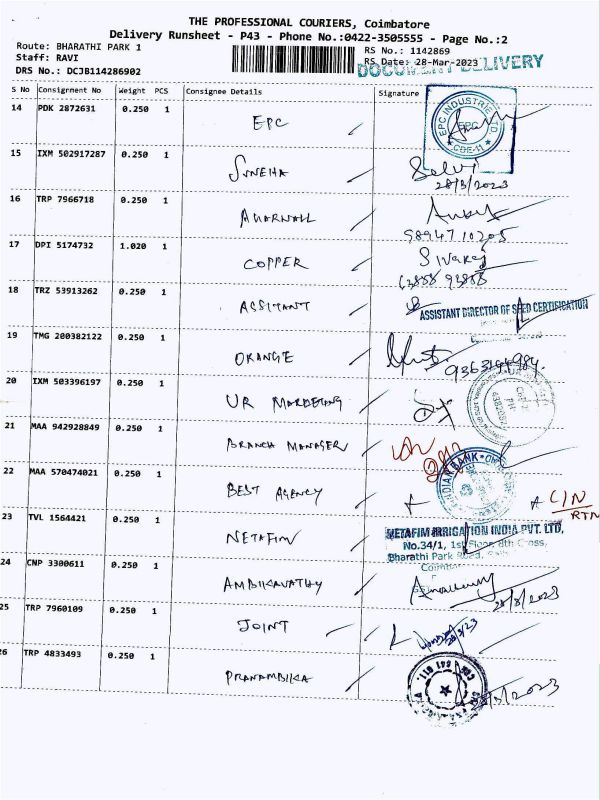 THE PROFESSIONAL COURIERS, Coimbatore
Delivery Runsheet - P43 - Phone No.:0422-3505555 - Page No.:2
Route: BHARATHI PARK 1
RS No.: 1142869
Staff: RAVI
RS Date: 28-Mar-2023
DRS No.: DCJB114286902
DOCUMENT DELIVERY
S No Consignment No Weight PCS Consignee Details Signature
14 PDK 2872631 0.250 1 EPC
EPC INDUSTRIE LTD
EPC
CBE-11
15 IXM 502917287 0.250 1 SNEHA Selvi
28/3/2023
16 TRP 7966718 0.250 1
9894710205
17 DPI 5174732 1.020 1 COPPER Sivaraj
63858 93858
18 TRZ 53913262 0.250 1 ASSITANT
ASSISTANT DIRECTOR OF SEED CERTIFICATION
19 TMG 200382122 0.250 1 ORANGE
20 IXM 503396197 0.250 1 UR MARKETING
21 MAA 942928849 0.250 1 BRANCH MANAGER
INDIAN BANK
22 MAA 570474021 0.250 1 BEST AGENCY
C/N
RTN
23 TVL 1564421 0.250 1 NETAFIM
NETAFIM IRRIGATION INDIA PVT. LTD,
No.34/1, 1st Floor 4th Cross,
Bharathi Park Road,
24 CNP 3300611 0.250 1 AMBIKAVATHY
28/3/2023
25 TRP 7960109 0.250 1 JOINT
26 TRP 4833493 0.250 1 PRANAMBIKA